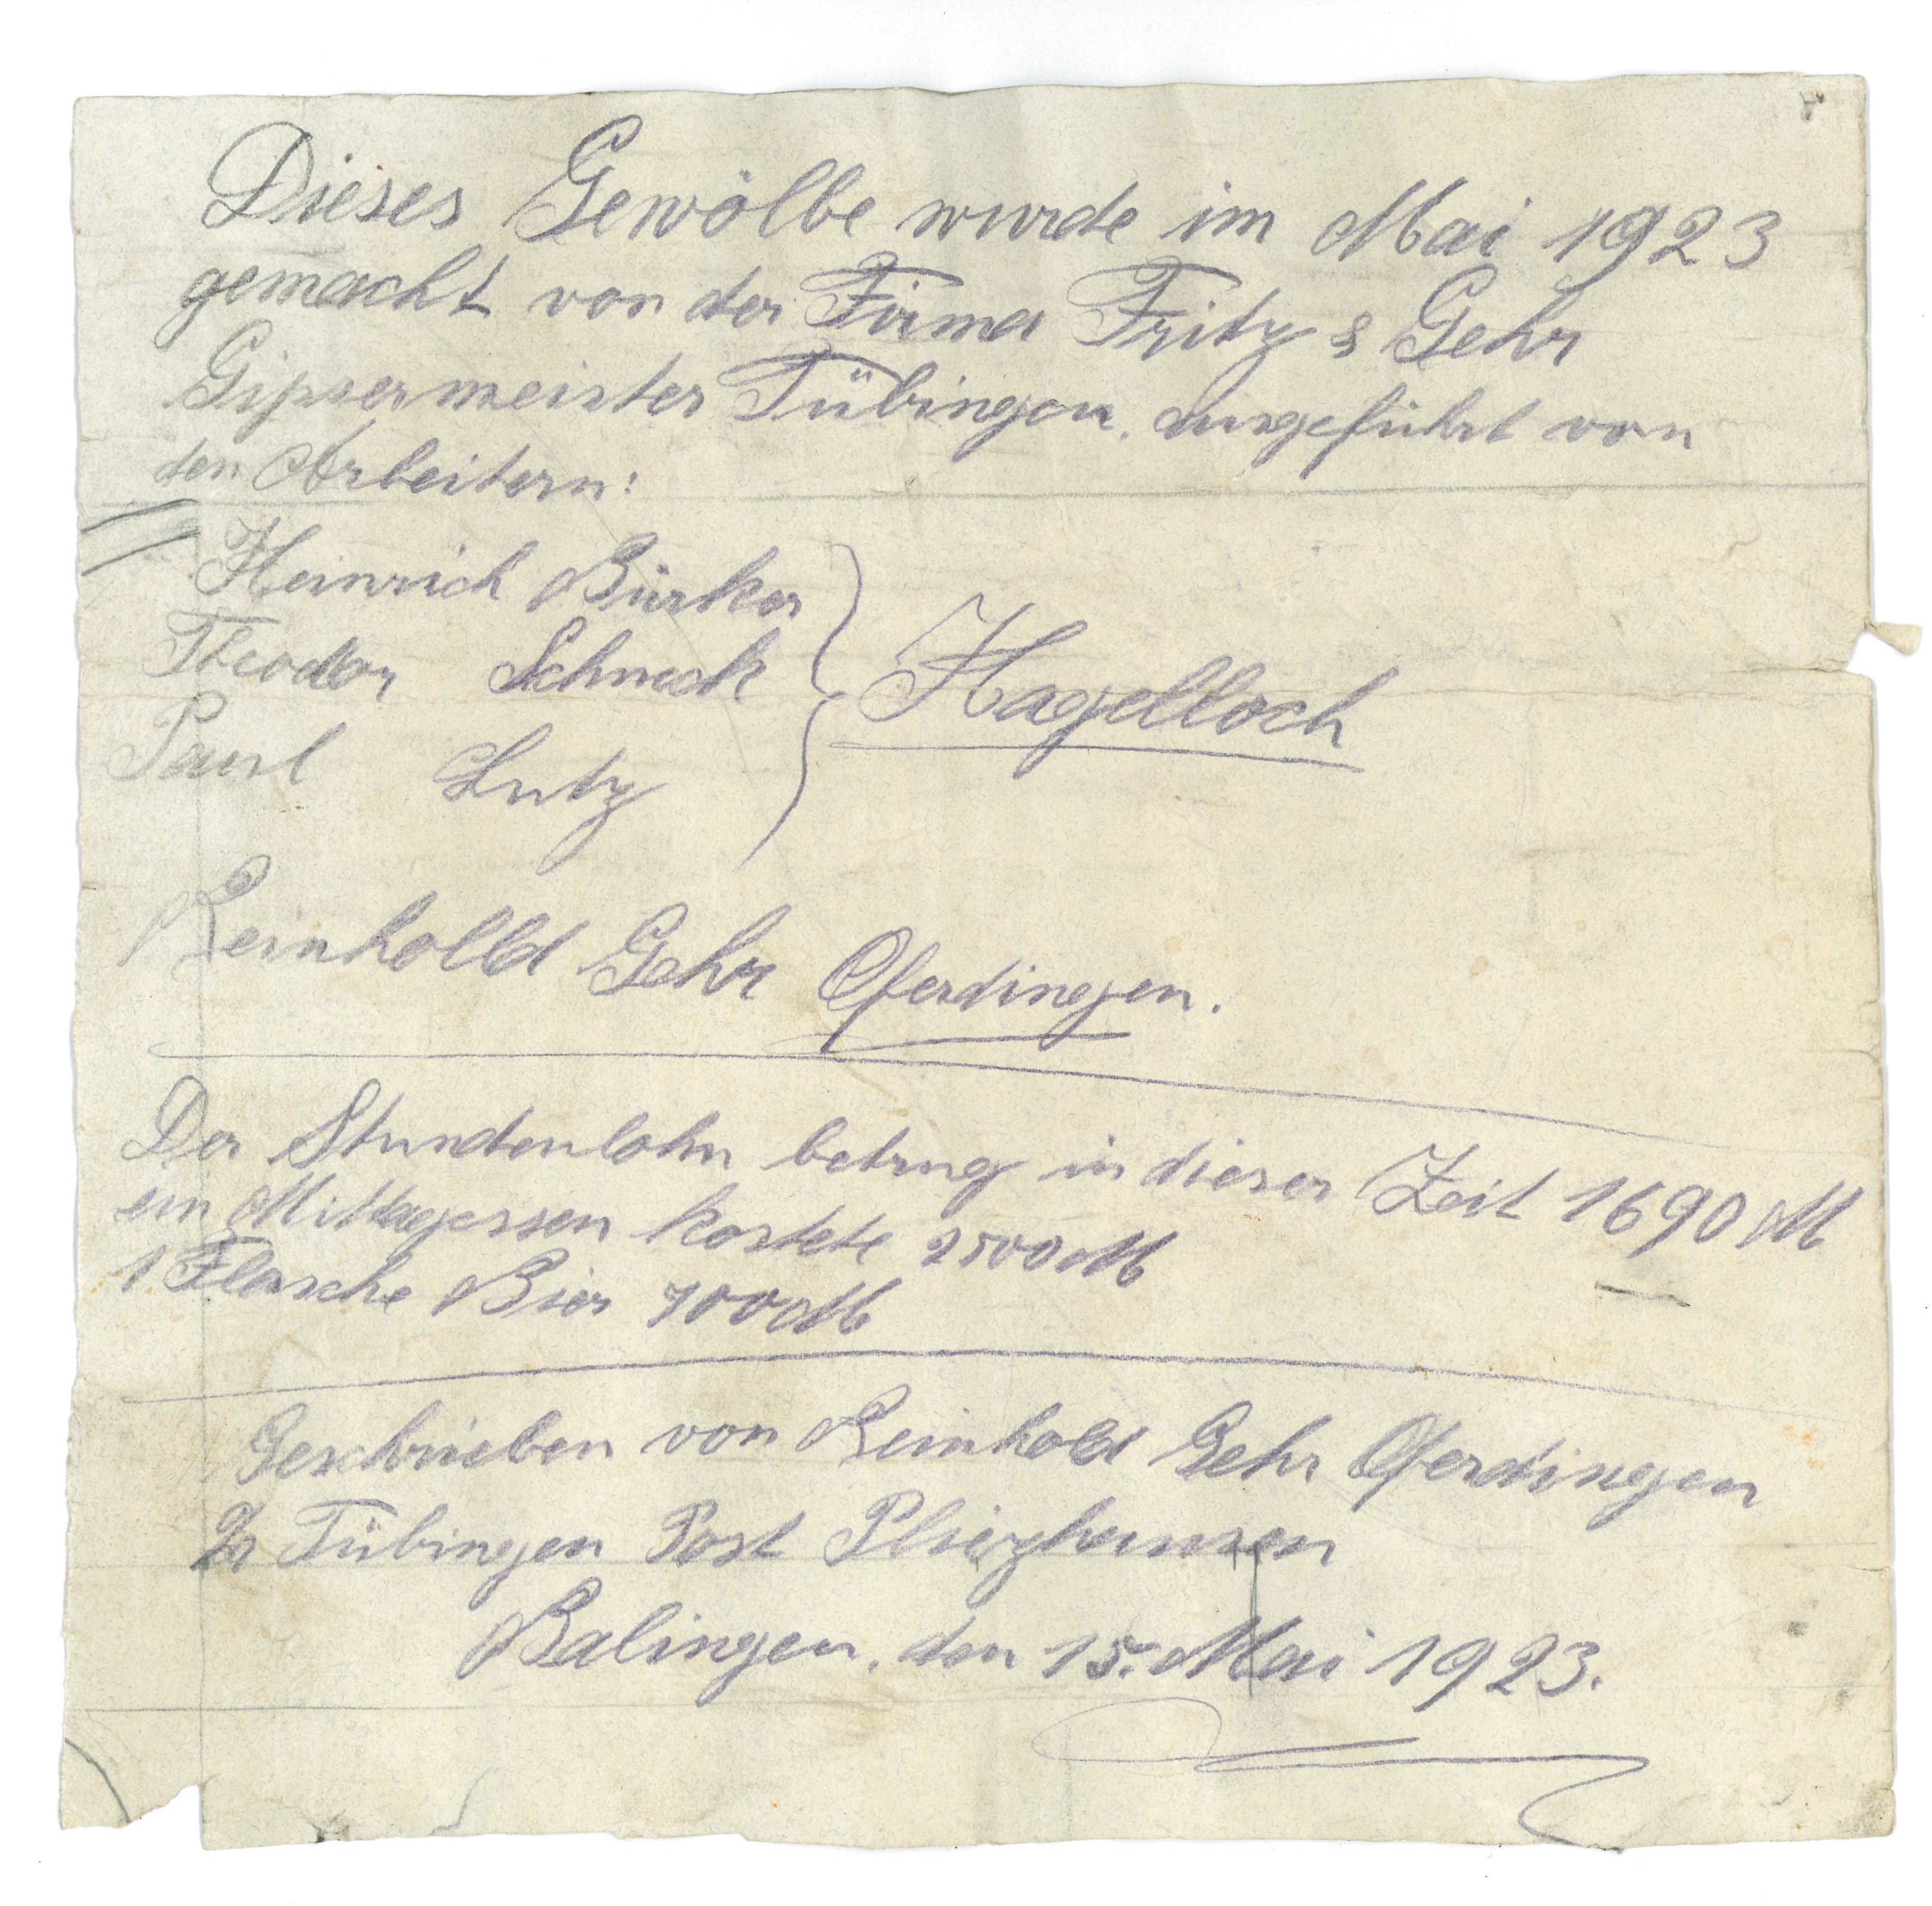 Dieses Gewölbe wurde im Mai 1923
gemacht von der Firma Fritz & Gehr
Gipsermeister Tübingen. ausgeführt von
den Arbeitern:
Heinrich Bürker
Theodor Schneck
Paul Lutz
Hagelloch
Reinholld Gehr Oferdingen.
Der Stundenlohn betrug in dieser Zeit 1690 M
ein Mittagessen kostete 2500 M
1 Flasche Bier 700 M
Geschrieben von Reinhold Gehr Oferdingen
Tübingen Post Pliezhausen
Balingen, den 15. Mai 1923.